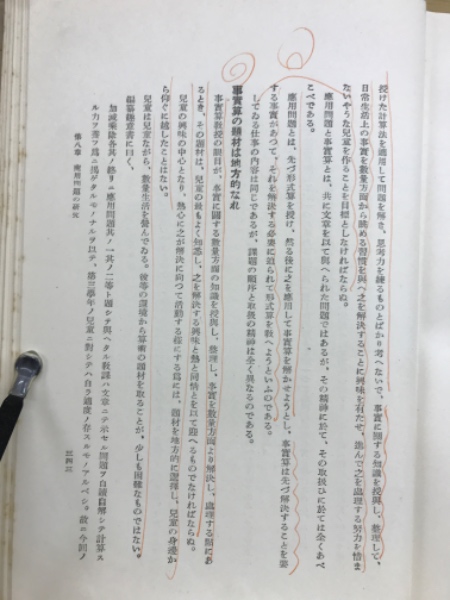 授けた計算法を適用して問題を解き、思考力を練るものとばかり考へないで、事實に關する知識を授與し、整理して、
日常生活上の事實を數量方面から眺める習慣を與へ之を解決することに興味を有たせ、進んで之を處理する努力を惜ま
ないやうな兒童を作ることを目標としなければならぬ。
應用問題と事實算とは、共に文章を以て與へられた問題ではあるが、その精神に於て、その取扱ひに於ては全くあべ
こべである。
應用問題とは、先づ形式算を授け、然る後に之を應用して事實算を解かせようとし、事實算は先づ解決することを要
する事實があつて、それを解決する必要に迫られて形式算を敎へようといふのである。
してゐる仕事の内容は同じであるが、課題の順序と取扱の精神は全く異なるのである。
事實算の題材は地方的なれ
事實算敎授の眼目が、事實に關する數量方面の知識を授與し、整理し、事實を數量方面より解決し、處理する點にあ
るとき、その題材は、兒童の最もよく知悉し、之を解決する興味と熱と同情とを以て迎へるものでなければならぬ。
兒童の興味の中心となり、熱心に之が解決に向つて活動する樣にする爲には、題材を地方的に選擇し、兒童の身邊か
ら仰ぐに越したことはない。
兒童は兒童ながら、數量生活を營んでゐる。彼等の環境から算術の題材を取ることが、少しも困難なものではない。
編纂趣意書に曰く、
加減乘除各其ノ終リニ應用問題其ノ一其ノ二等ト題シテ與ヘタル敎課ハ文章ニテ示セル問題ヲ自讀自解シテ計算ス
ル力ヲ養フ爲ニ揭ゲタルモノナルヲ以テ、第三學年ノ兒童ニ對シテハ自ラ適度ノ存スルモノアルベシ。故ニ今回ノ
第八章 應用問題の研究
三四三